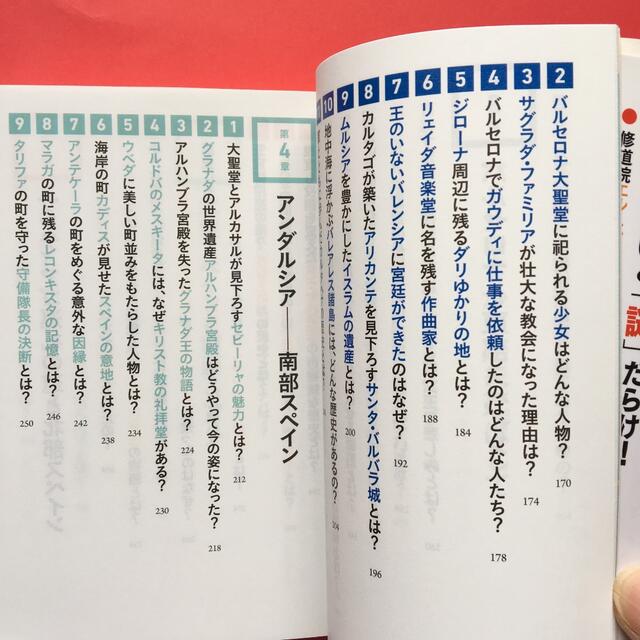 2 バルセロナ大聖堂に祀られる少女はどんな人物? 170
3 サグラダ・ファミリアが壮大な教会になった理由は? 174
4 バルセロナでガウディに仕事を依頼したのはどんな人たち? 178
5 ジローナ周辺に残るダリゆかりの地とは? 184
6 リェイダ音楽堂に名を残す作曲家とは? 188
7 王のいないバレンシアに宮廷ができたのはなぜ? 192
8 カルタゴが築いたアリカンテを見下ろすサンタ・バルバラ城とは? 196
9 ムルシアを豊かにしたイスラムの遺産とは? 200
10 地中海に浮かぶバレアレス諸島には、どんな歴史があるの? 204
第4章 アンダルシア――南部スペイン
1 大聖堂とアルカサルが見下ろすセビーリャの魅力とは? 212
2 グラナダの世界遺産アルハンブラ宮殿はどうやって今の姿になった? 218
3 アルハンブラ宮殿を失ったグラナダ王の物語とは? 224
4 コルドバのメスキータには、なぜキリスト教の礼拝堂がある? 230
5 ウベダに美しい町並みをもたらした人物とは? 234
6 海岸の町カディスが見せたスペインの意地とは? 238
7 アンテケーラの町をめぐる意外な因縁とは? 242
8 マラガの町に残るレコンキスタの記憶とは? 246
9 タリファの町を守った守備隊長の決断とは? 250
修道院
謎」だらけ!